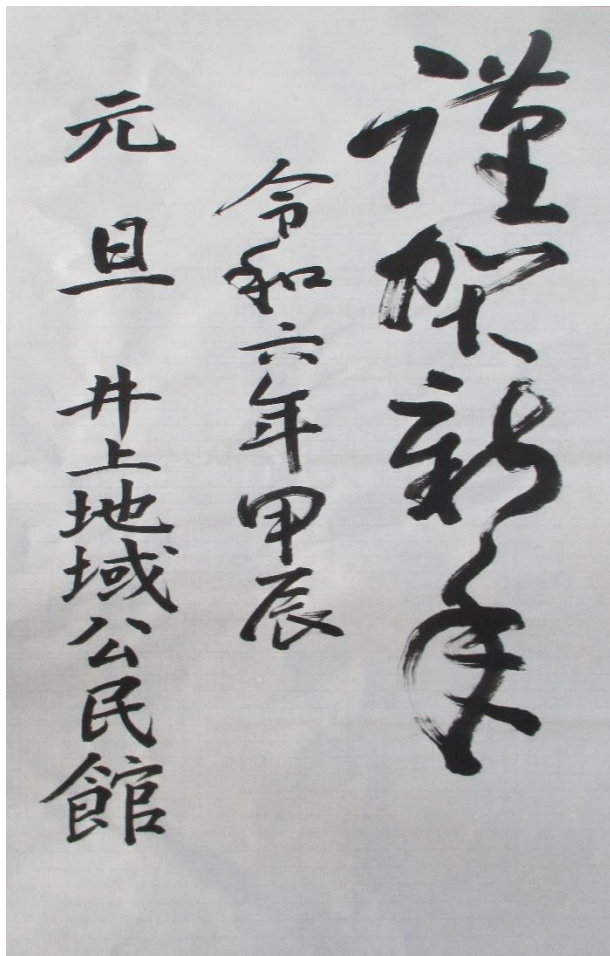 謹賀新年
令和六年甲辰
元旦 井上地域公民館